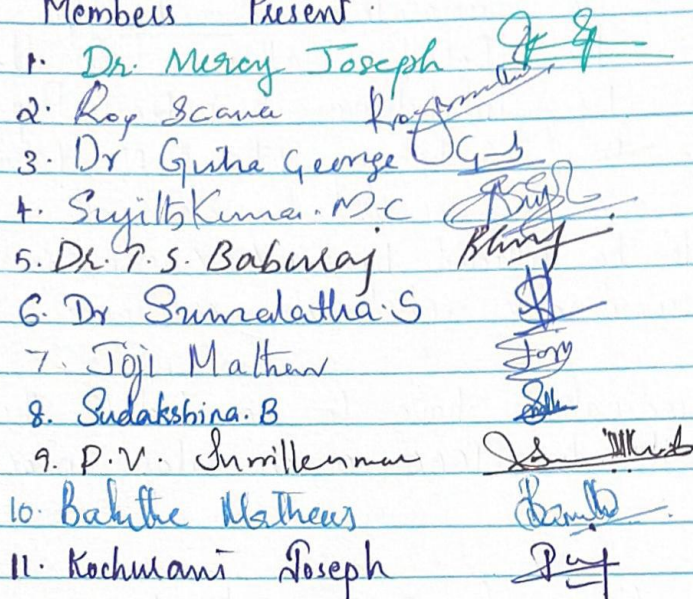 Members Present.
1. Dr. Mercy Joseph
2. Roy Scaria
3. Dr Guiha George
4. Sujith Kumar. M-C
5. Dr. T. S. Baburaj
6. Dr Sumalatha. S
7. Joji Mathew
8. Sudakshina. B
9. P. V.
10. Mathews
11. Kochurani Joseph